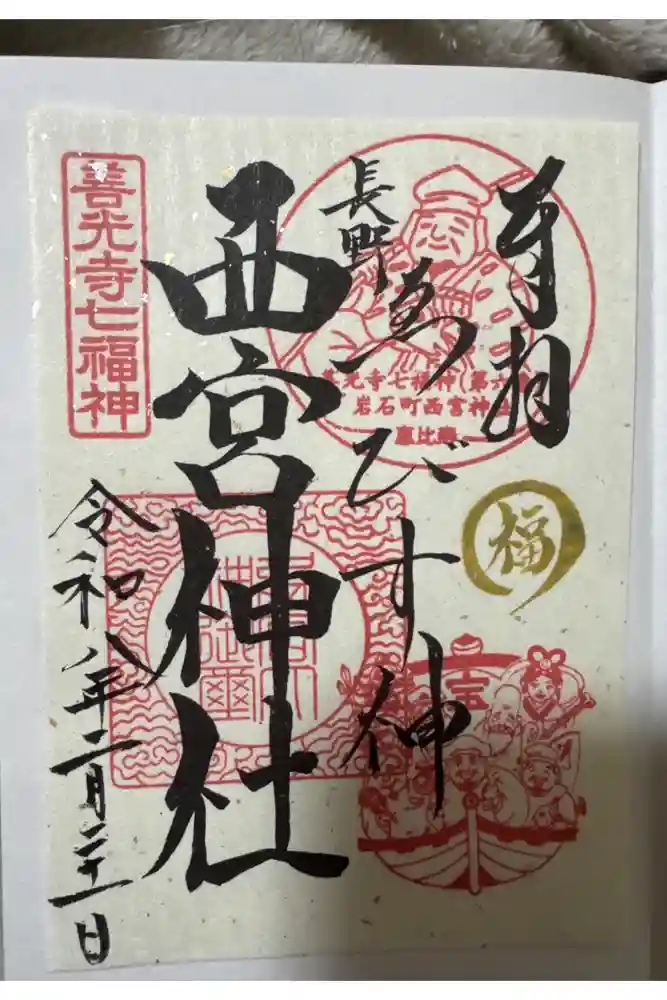 奉拝
長野
ゑびす神
西宮神社
令和八年二月二十一日
善光寺七福神
善光寺七福神(第六
岩石町西宮神社
福
宝